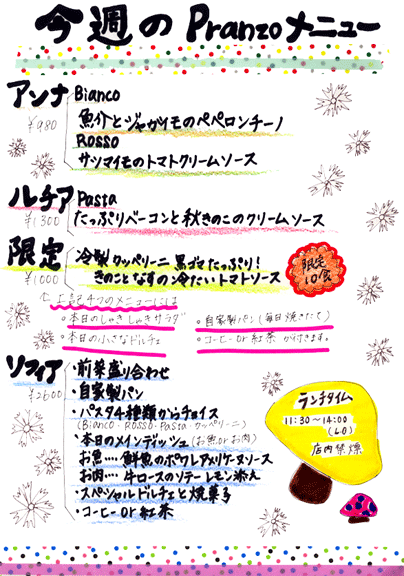 今週のPranzoメニュー
アンナ Bianco
¥980
魚介とジャガイモのペペロンチーノ
Rosso
サツマイモのトマトクリームソース
ルチア Pasta
¥1300
たっぷりベーコンと秋きのこのクリームソース
限定
¥1000
冷製カッペリーニ 黒ゴマたっぷり!
きのことなすの冷たいトマトソース
限定
10食
上記4つのメニューには
・本日のしゃきしゃきサラダ
・自家製パン(毎日焼きたて)
・本日の小さなドルチェ
・コーヒーor紅茶 が付きます。
ソフィア
¥2600
・前菜盛り合わせ
・自家製パン
・パスタ4種類からチョイス
(Bianco・Rosso・Pasta・カッペリーニ)
・本日のメインディッシュ(お魚orお肉)
お魚・・・鮮魚のポワレ アメリケーヌソース
お肉・・・牛ロースのソテー レモン添え
・スペシャルドルチェと焼菓子
・コーヒーor紅茶
ランチタイム
11:30~14:00
(L.O)
店内禁煙